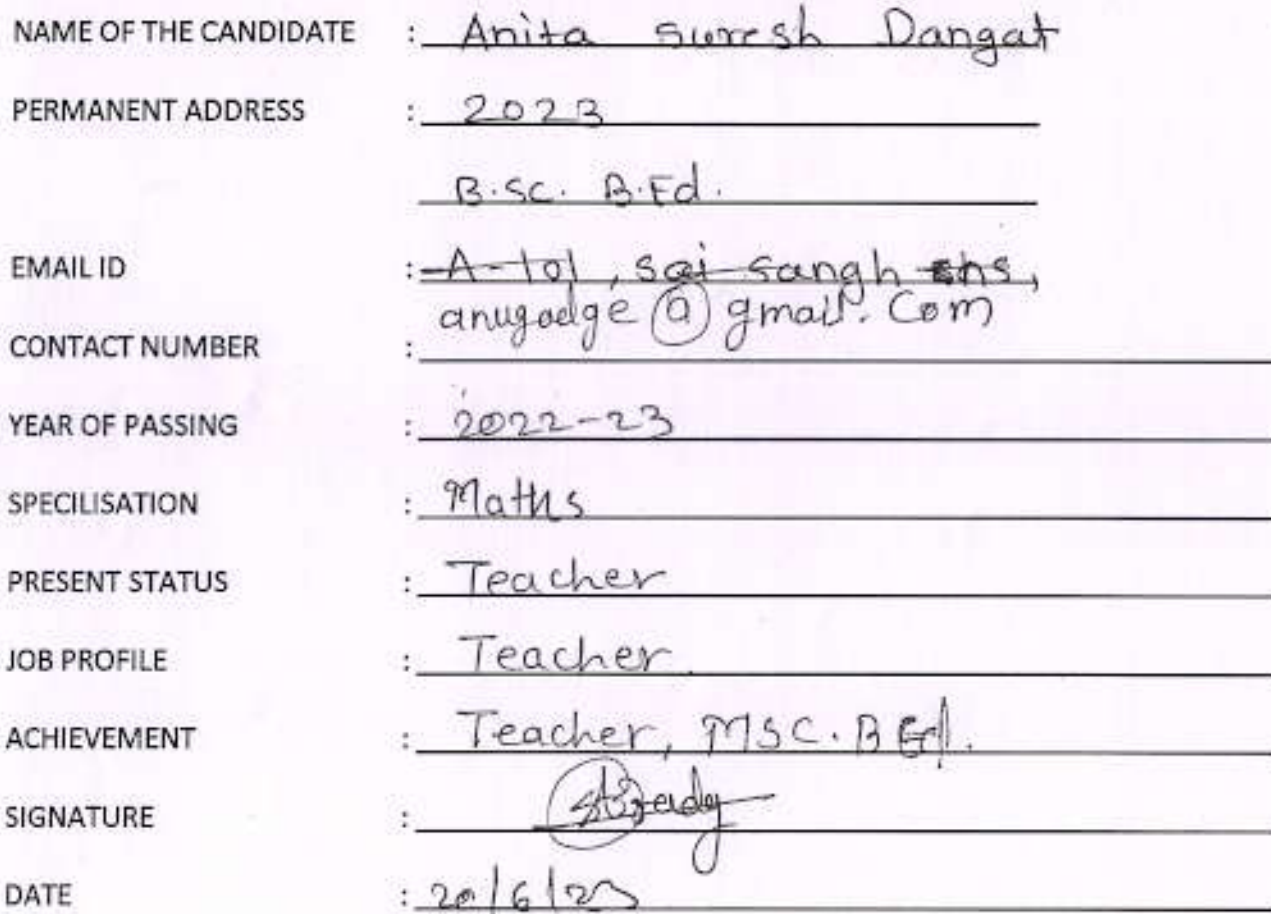 NAME OF THE CANDIDATE : Anita Suresh Dangat
PERMANENT ADDRESS : 2023
B.SC. B.Ed.
EMAIL ID : A-101, sai sangh chs,
anugadge@gmail.com
CONTACT NUMBER :
YEAR OF PASSING : 2022-23
SPECILISATION : Maths
PRESENT STATUS : Teacher
JOB PROFILE : Teacher.
ACHIEVEMENT : Teacher, MSC. B Ed.
SIGNATURE :
DATE : 20/6/23